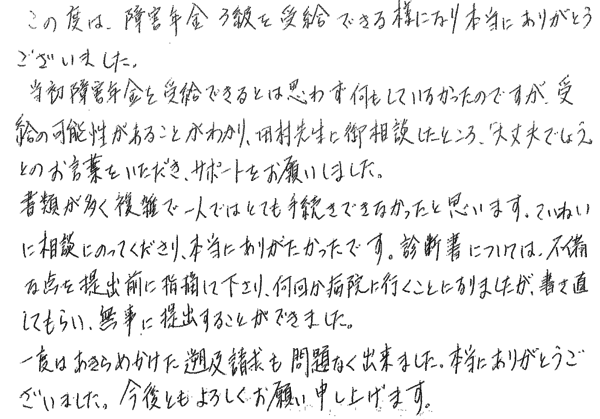 この度は、障害年金3級を受給できる様になり本当にありがとう
ございました。
当初障害年金を受給できるとは思わず何もしていなかったのですが、受
給の可能性があることがわかり、田村先生に御相談したところ、「大丈夫でしょう」
とのお言葉をいただき、サポートをお願いしました。
書類が多く複雑で一人ではとても手続きできなかったと思います。ていねい
に相談にのってくださり、本当にありがたかったです。診断書については、不備
な点を提出前に指摘して下さり、何回か病院に行くことになりましたが、書き直
してもらい、無事に提出することができました。
一度はあきらめかけた遡及請求も問題なく出来ました。本当にありがとうご
ざいました。今後ともよろしくお願い申し上げます。